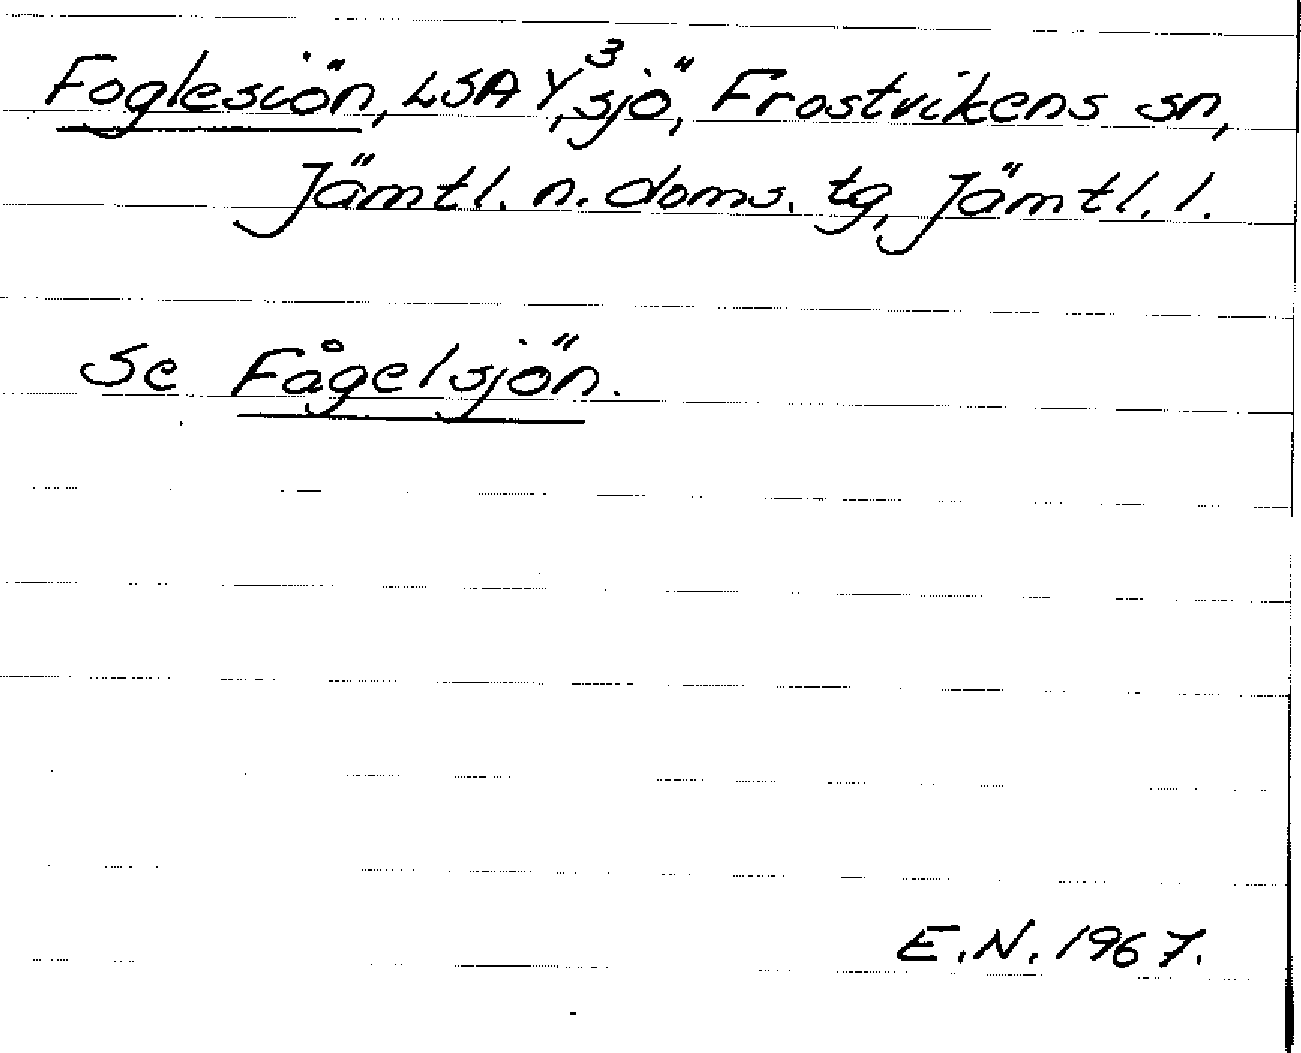 Foglesiön, LSA Y³, sjö, Frostvikens sn,
Jämtl. n. doms. tg, Jämtl. l.
Se Fågelsjön.
E.N. 1967.